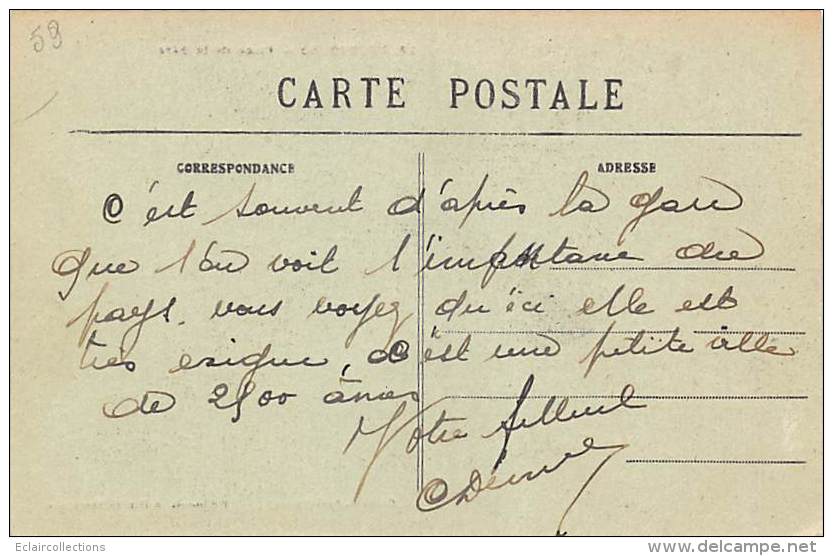 59
CARTE POSTALE
CORRESPONDANCE
ADRESSE
C'est souvent d'après la gare
que l'on voit l'importance du
pays. vous voyez qu'ici elle est
très exigue, c'est une petite ville
de 2500 âmes
Votre filleul
Eclaircollections
www.delcampe.net